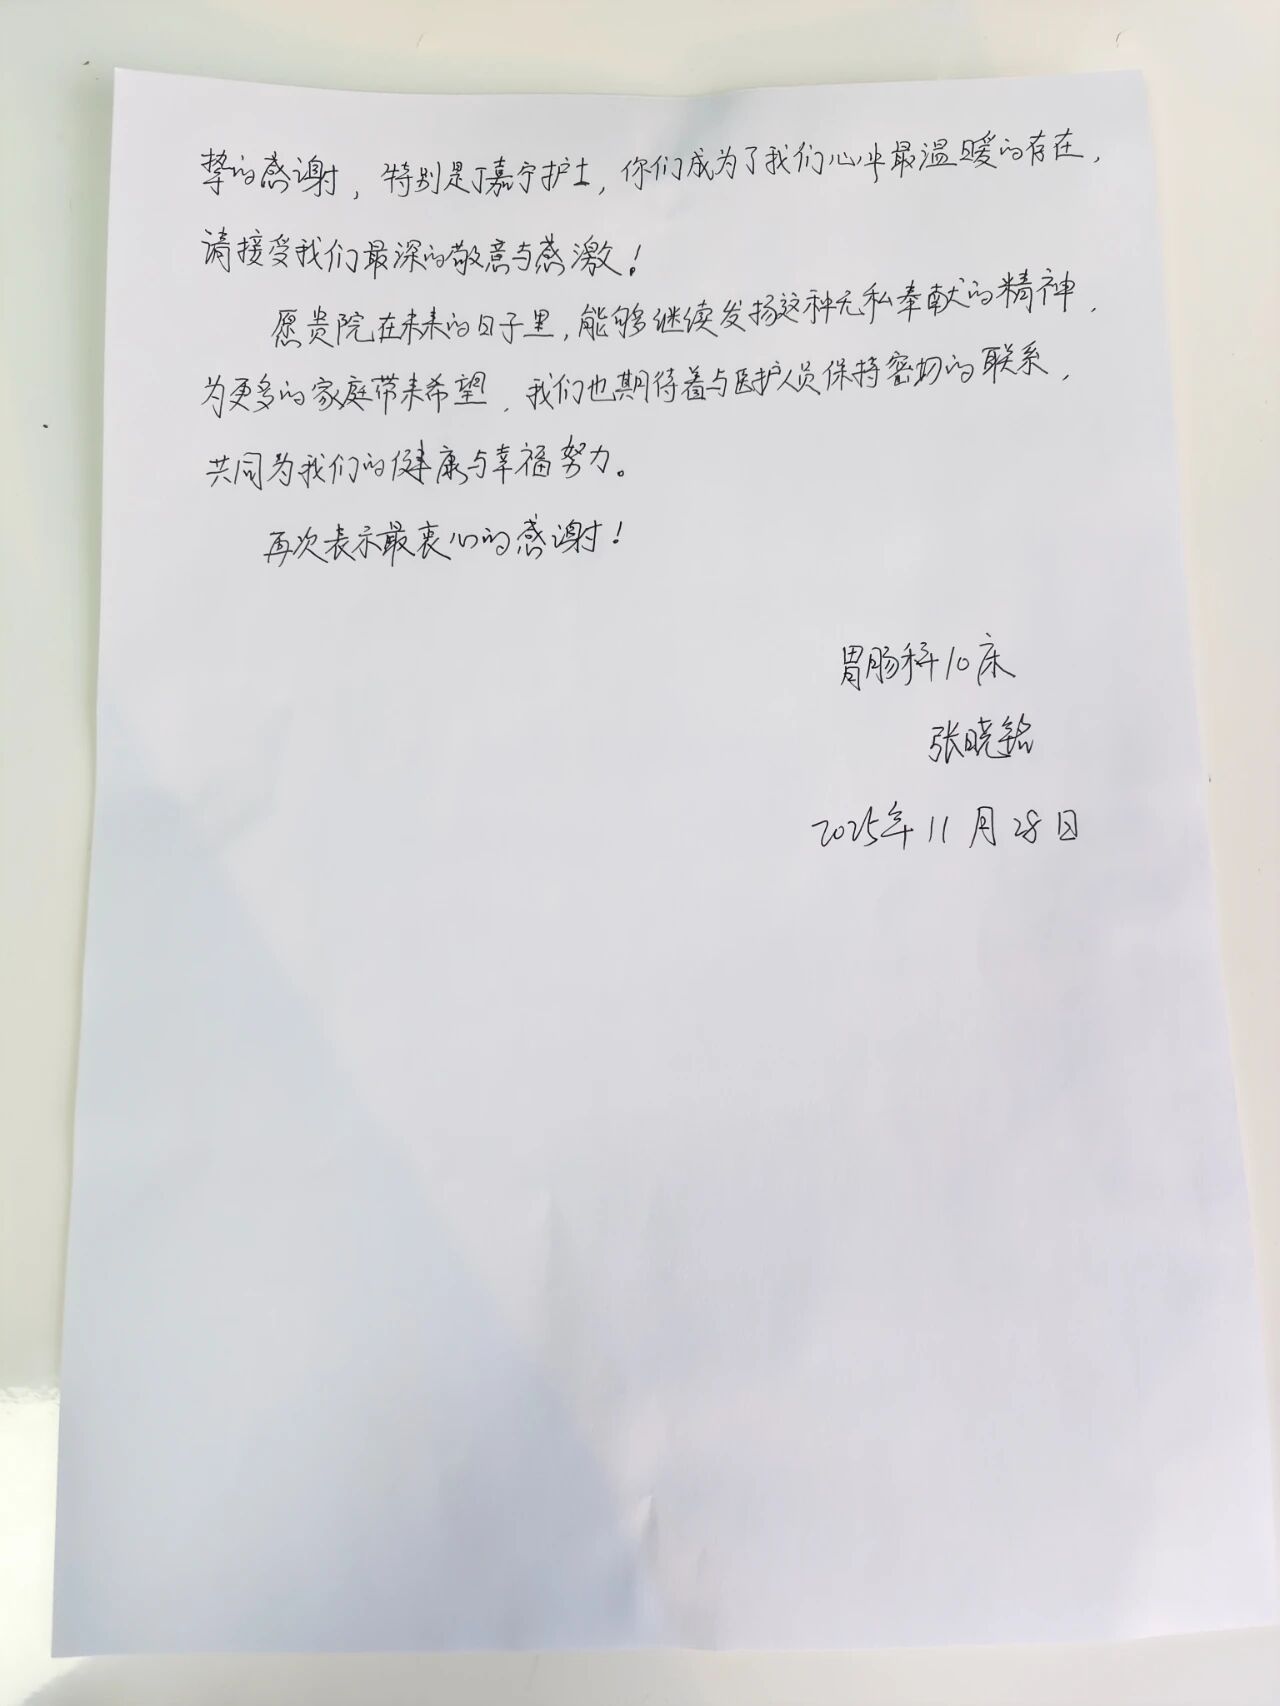 挚的感谢，特别是丁嘉宁护士，你们成为了我们心中最温暖的存在，
请接受我们最深的敬意与感激！
愿贵院在未来的日子里，能够继续发扬这种无私奉献的精神，
为更多的家庭带来希望，我们也期待着与医护人员保持密切的联系，
共同为我们的健康与幸福努力。
再次表示最衷心的感谢！
胃肠科10床
张晓铭
2025年11月28日